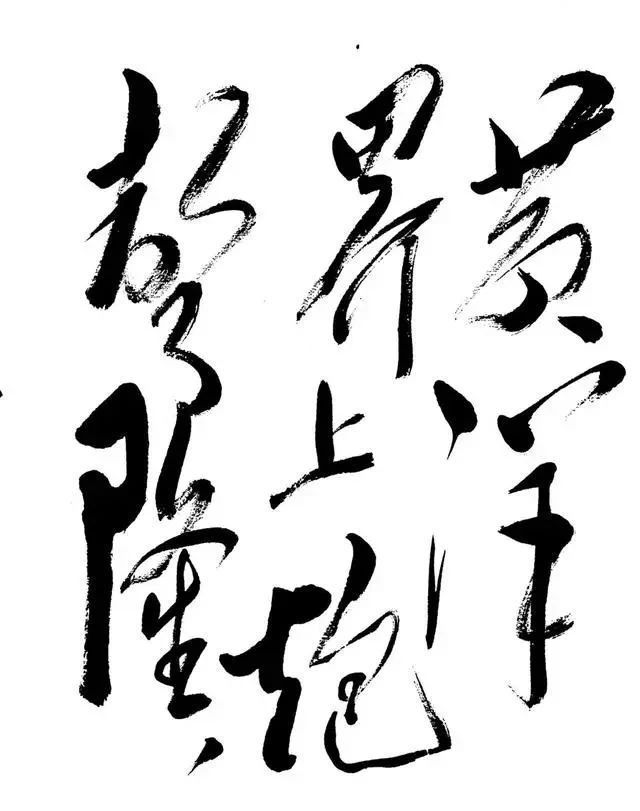 黄洋
界上炮
聲隆